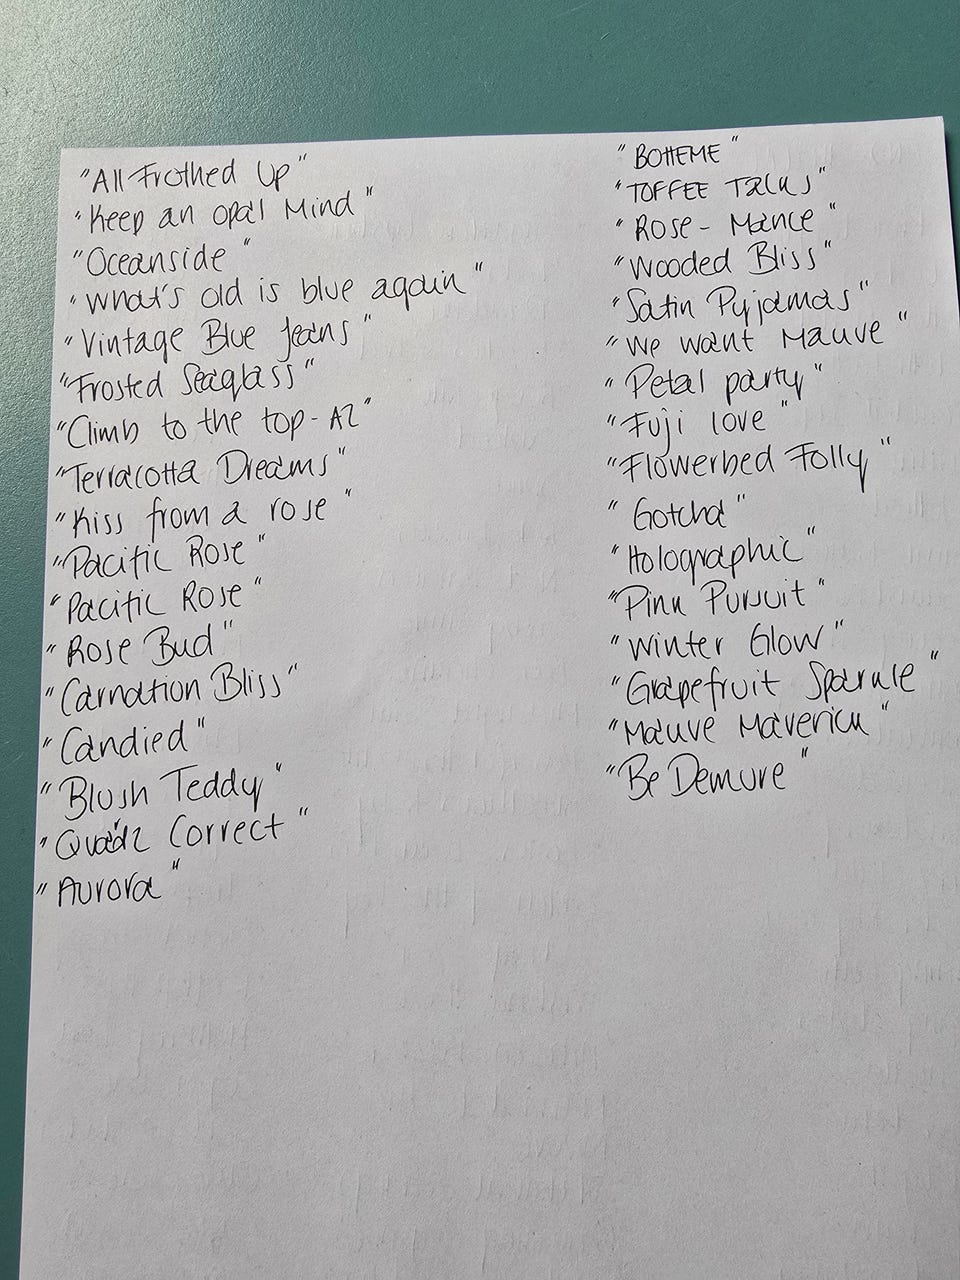 "All Frothed Up"
"Keep an opal Mind"
"Oceanside"
"What's old is blue again"
"Vintage Blue Jeans"
"Frosted Seaglass"
"Climb to the top - AZ"
"Terracotta Dreams"
"Kiss from a rose"
"Pacific Rose"
"Pacific Rose"
"Rose Bud"
"Carnation Bliss"
"Candied"
"Blush Teddy"
"Quartz Correct"
"Aurora"
"BOHEME"
"TOFFEE Talks"
"Rose - Mance"
"Wooded Bliss"
"Satin Pyjamas"
"We want Mauve"
"Petal party"
"Fuji love"
"Flowerbed Folly"
"Gotcha"
"Holographic"
"Pink Pursuit"
"Winter Glow"
"Grapefruit Sparkle"
"Mauve Maverick"
"Be Demure"